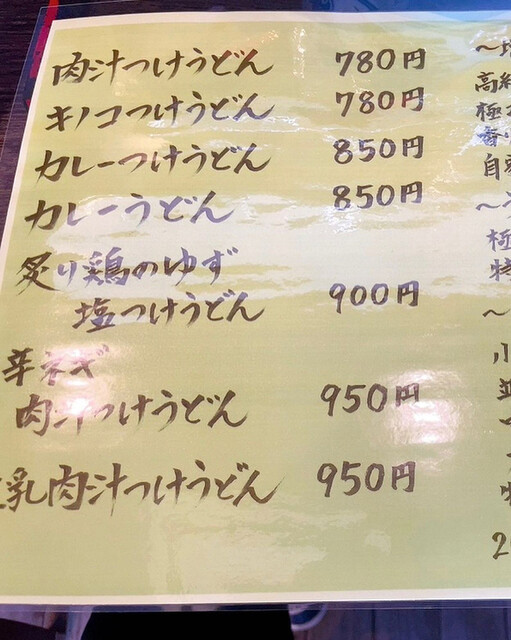 肉汁つけうどん 780円
キノコつけうどん 780円
カレーつけうどん 850円
カレーうどん 850円
炙り鶏のゆず
塩つけうどん 900円
辛ネギ
肉汁つけうどん 950円
乳肉汁つけうどん 950円
〜
高
極
香
自
〜
極
特
〜
小
並
2